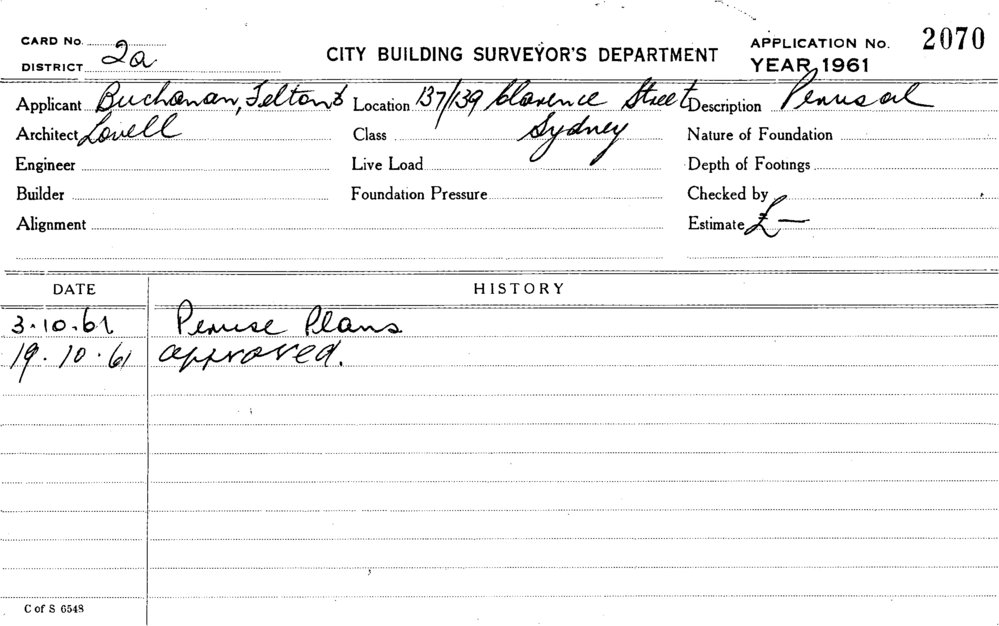 CARD No.
DISTRICT 2a
CITY BUILDING SURVEYOR'S DEPARTMENT
APPLICATION No. 2070
YEAR, 1961
Applicant Buchanan, Felton & Location 137/139 Clarence Street Description Perusal
Architect Lovell Class Sydney Nature of Foundation
Engineer Live Load Depth of Footings
Builder Foundation Pressure Checked by
Alignment Estimate £ —
DATE HISTORY
3.10.61 Peruse Plans
19.10.61 approved.
C of S 6548